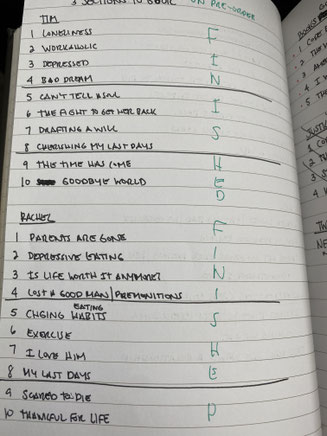 3 SECTIONS TO BOOK ON PRE-ORDER
TIM
1 LONELINESS F
2 WORKAHOLIC
3 DEPRESSED I
4 BAD DREAM N
5 CAN'T TELL A SOUL
6 THE FIGHT TO GET HER BACK I
7 DRAFTING A WILL S
8 CHERISHING MY LAST DAYS
9 THE TIME HAS COME H
10 GOODBYE WORLD E
D
RACHEL
F
1 PARENTS ARE GONE
2 DEPRESSIVE EATING I
3 IS LIFE WORTH IT ANYMORE? N
4 LOST A GOOD MAN/PREMONITIONS I
EATING
5 CHGING HABITS S
6 EXERCISE
7 I LOVE HIM H
8 MY LAST DAYS E
9 SCARED TO DIE
10 THANKFUL FOR LIFE D